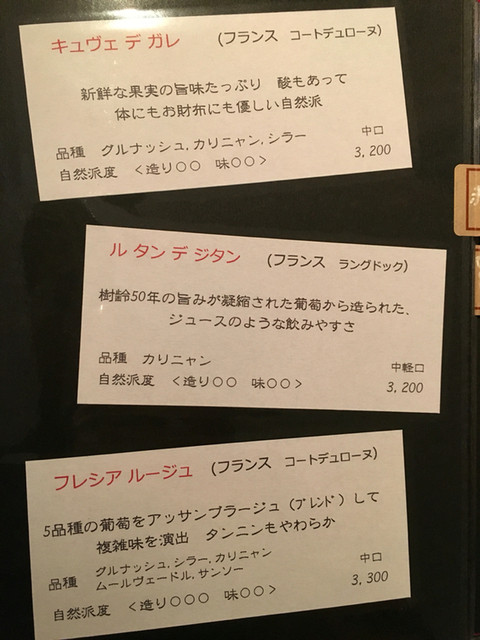 キュヴェ デ ガレ （フランス コートデュローヌ）
新鮮な果実の旨味たっぷり 酸もあって
体にもお財布にも優しい自然派
品種 グルナッシュ,カリニャン,シラー 中口
自然派度 ＜造り○○ 味○○＞ 3,200
ル タン デ ジタン （フランス ラングドック）
樹齢50年の旨みが凝縮された葡萄から造られた、
ジュースのような飲みやすさ
品種 カリニャン 中軽口
自然派度 ＜造り○○ 味○○＞ 3,200
フレシア ルージュ （フランス コートデュローヌ）
5品種の葡萄をアッサンブラージュ（ブレンド）して
複雑味を演出 タンニンもやわらか
グルナッシュ,シラー,カリニャン
品種 ムールヴェードル,サンソー 中口
自然派度 ＜造り○○○ 味○○＞ 3,300